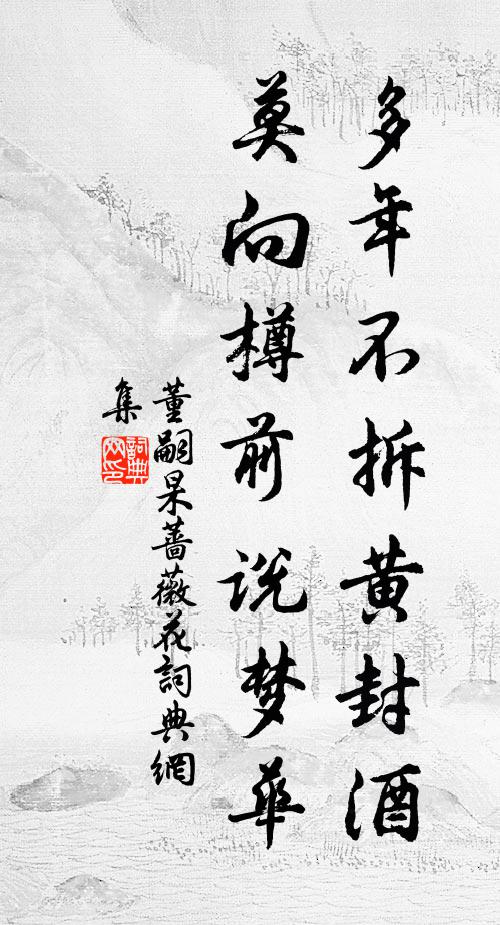 多年不拆黄封酒
莫向樽前说梦华
董嗣杲蔷薇花詞典網
集
詞典
网印